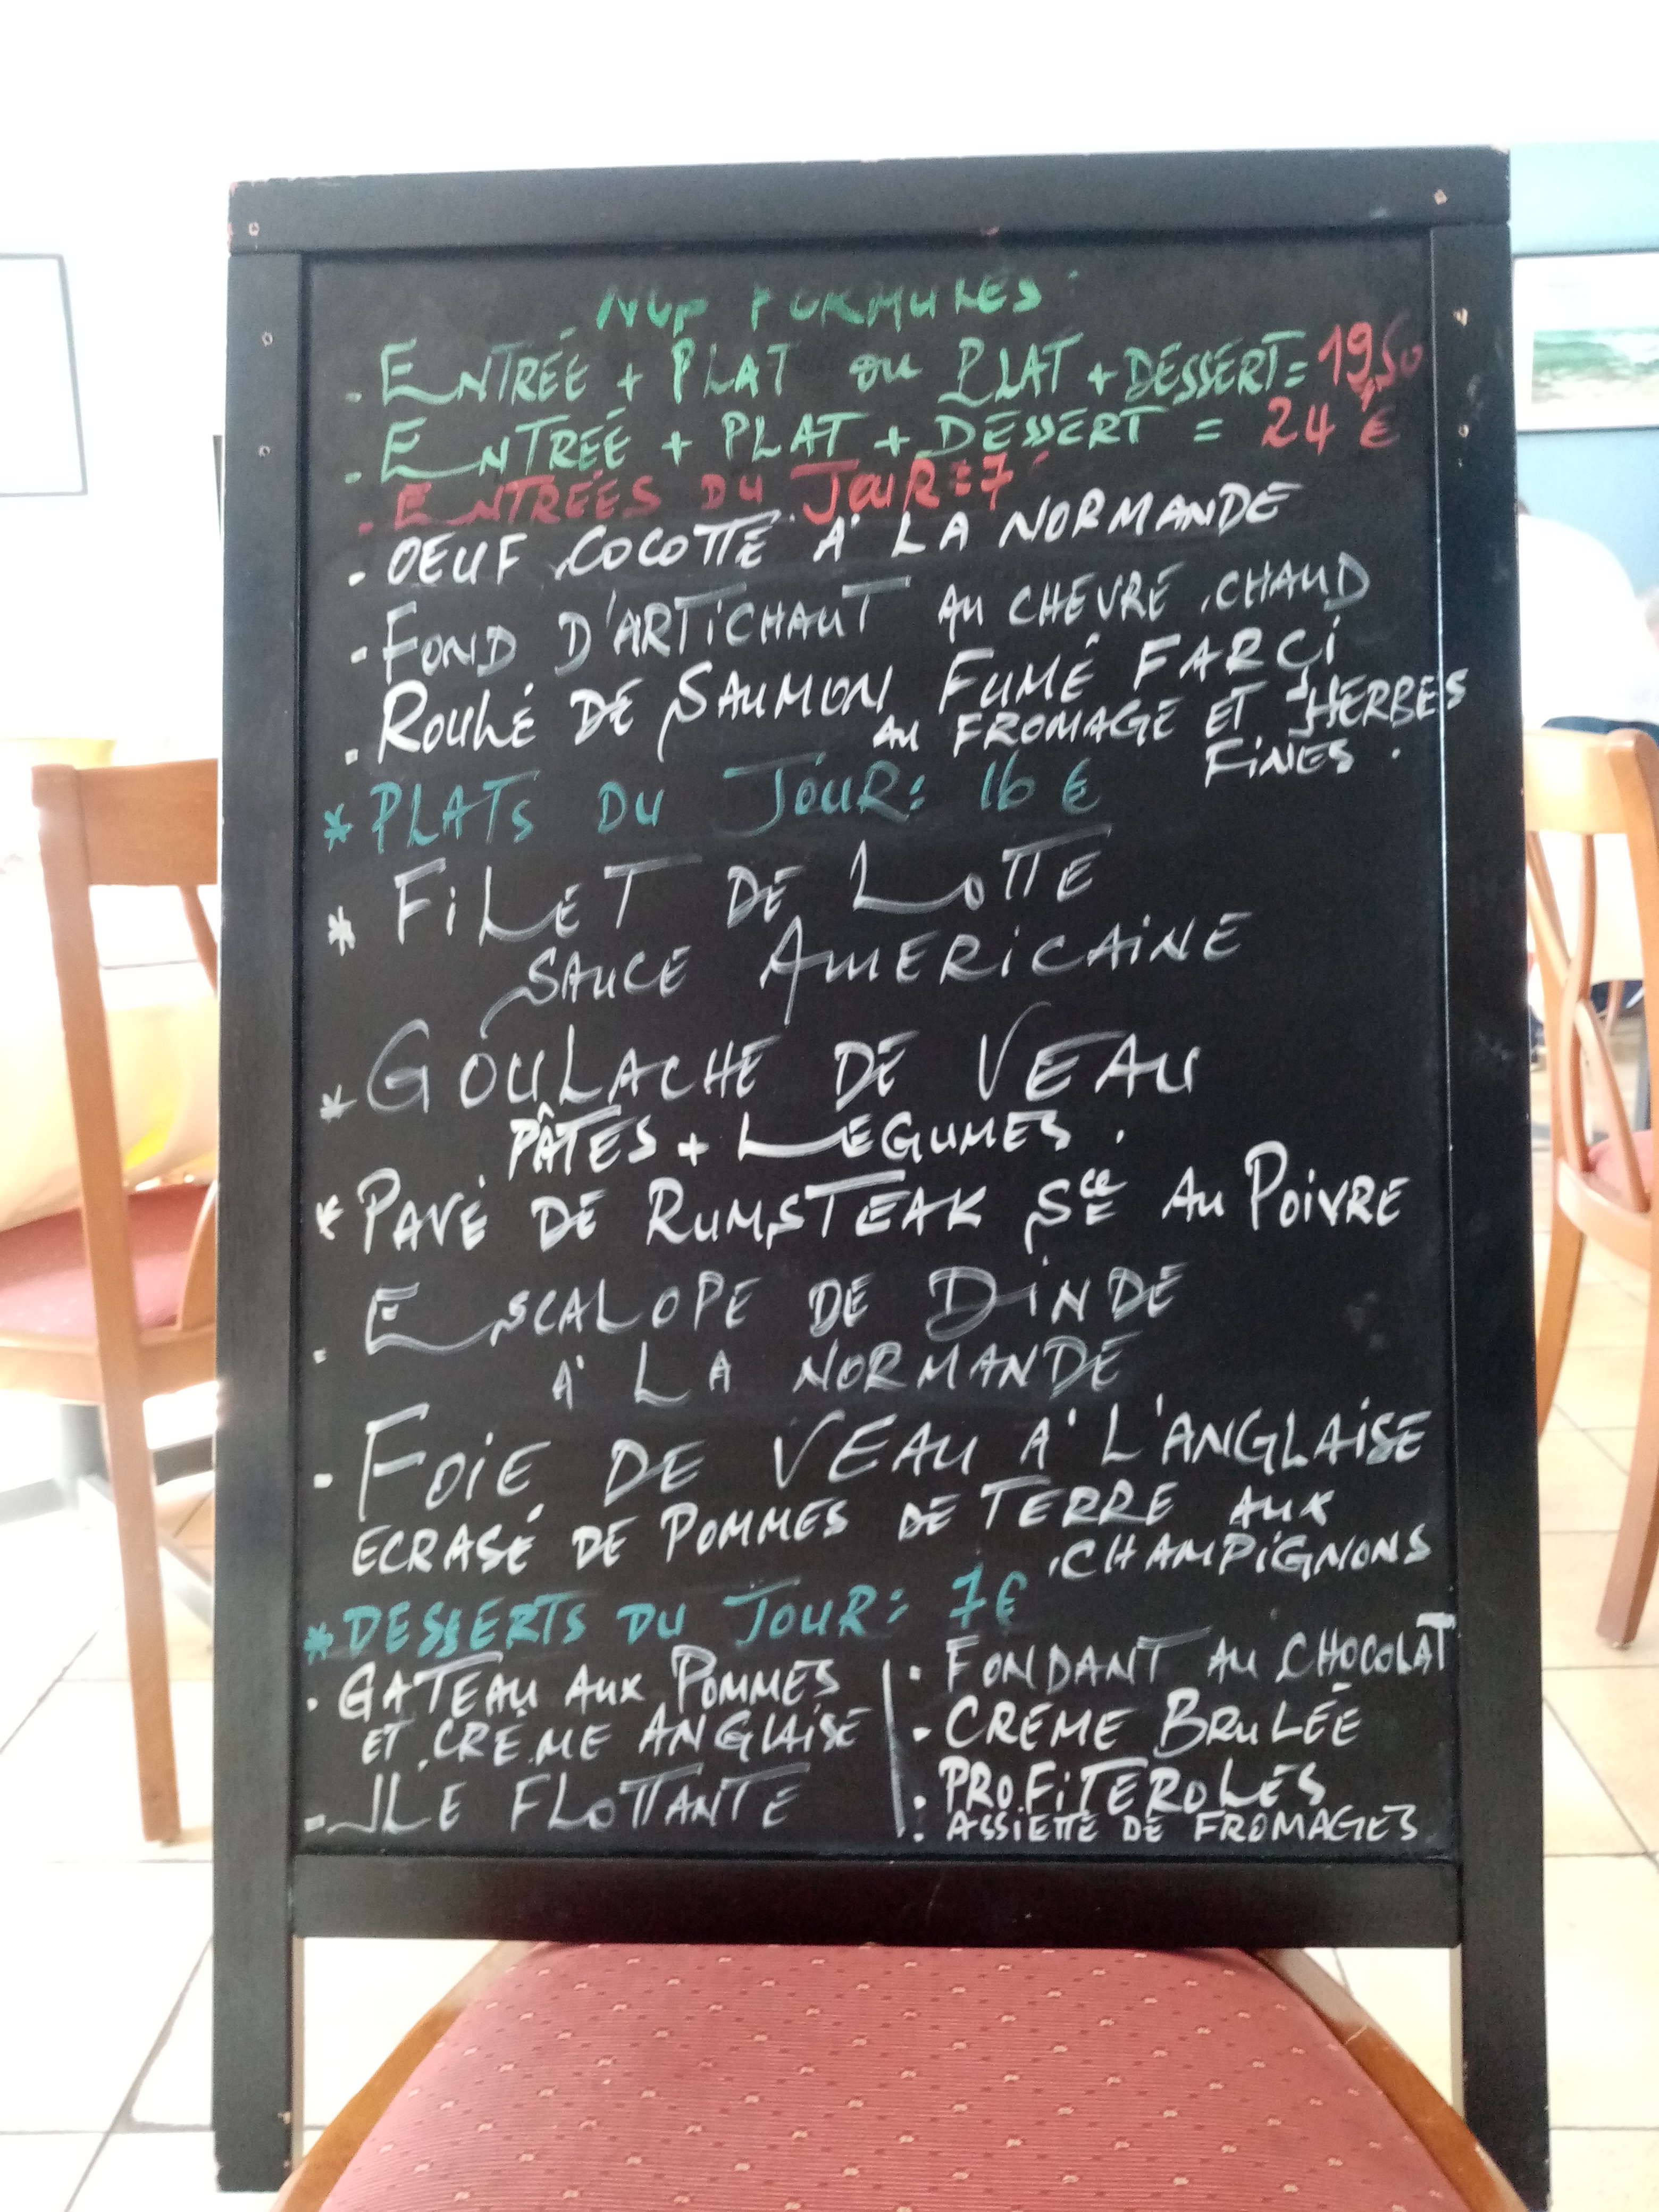 NOS FORMULES
. ENTRÉE + PLAT ou PLAT + DESSERT = 19,50
. ENTRÉE + PLAT + DESSERT = 24 €
. ENTRÉES DU JOUR = 7
. OEUF COCOTTE À LA NORMANDE
. FOND D'ARTICHAUT AU CHEVRE CHAUD
. ROULÉ DE SAUMON FUMÉ FARCI
AU FROMAGE ET HERBES
FINES.
* PLATS DU JOUR: 16 €
* FILET DE LOTTE
SAUCE AMERICAINE
* GOULACHE DE VEAU
PÂTES + LEGUMES.
* PAVÉ DE RUMSTEAK Sce AU POIVRE
. ESCALOPE DE DINDE
À LA NORMANDE
. FOIE DE VEAU À L'ANGLAISE
ECRASÉ DE POMMES DE TERRE AUX
CHAMPIGNONS
* DESSERTS DU JOUR: 7€
. GATEAU AUX POMMES
ET CRÈME ANGLAISE
. ILE FLOTTANTE
. FONDANT AU CHOCOLAT
. CRÉME BRULÉE
. PROFITEROLES
. ASSIETTE DE FROMAGES